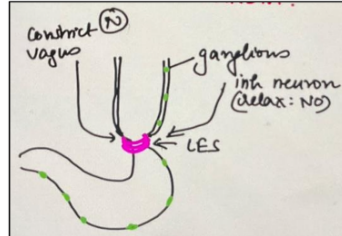 constrict Ⓝ
vagus
ganglions
inh neuron
(relax: NO)
LES